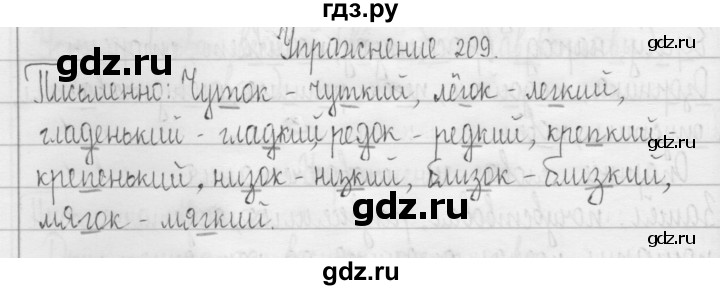 гдз.ру
Упражнение 209.
Письменно: Чуток - чуткий, лёгок - легкий,
гладенький - гладкий, редок - редкий, крепкий -
крепенький, низок - низкий, близок - близкий,
мягок - мягкий.
gdz.ru
gdz.ru
gdz.ru
gdz.ru
gdz.ru
gdz.ru
gdz.ru
gdz.ru
gdz.ru
gdz.ru